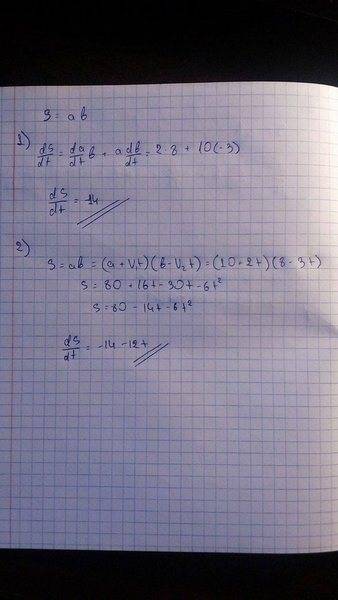 S = ab
1)
dS/dt = da/dt b + a db/dt = 2·8 + 10(-3)
dS/dt = -14
2)
S = ab = (a + V₁t)(b - V₂t) = (10 + 2t)(8 - 3t)
S = 80 + 16t - 30t - 6t²
S = 80 - 14t - 6t²
dS/dt = -14 - 12t